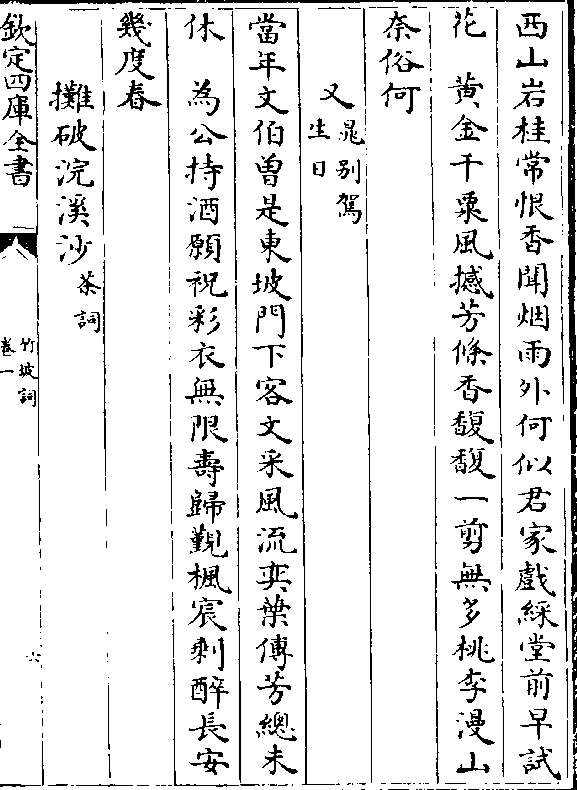 西山岩桂常恨香聞烟雨外何似君家戲綵堂前早試
花　黄金千粟風撼芳條香馥馥一剪無多桃李漫山
奈俗何
又晁别駕生日
當年文伯曽是東坡門下客文采風流奕葉傳芳總未
休　為公持酒願祝彩衣無限壽歸覲楓宸剰醉長安
幾度春
攤破浣溪沙茶詞
欽定四庫全書
竹坡詞
卷一
六